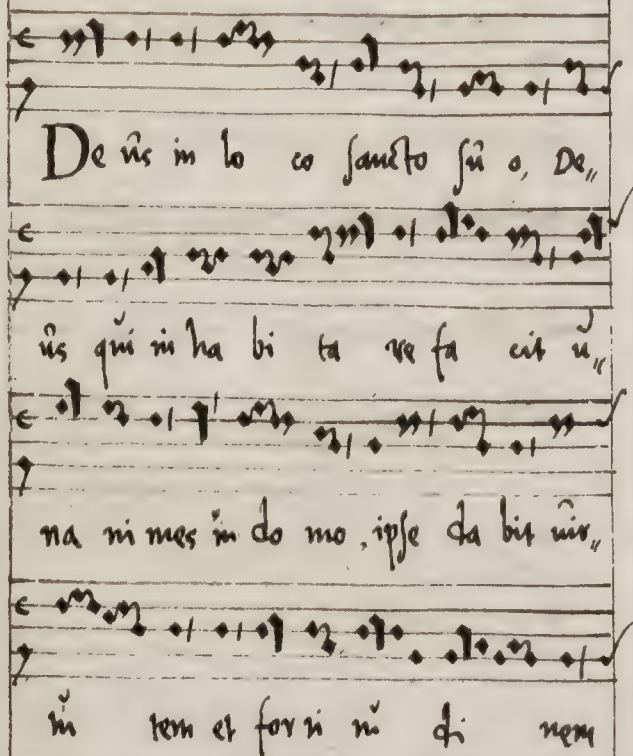 De ûs in lo co sancto sû o, De„
ûs qui in ha bi ta re fa cit ŭ„
na ni mes in do mo, ipse da bit vir„
tŭ tem et for ti tŭ di nem